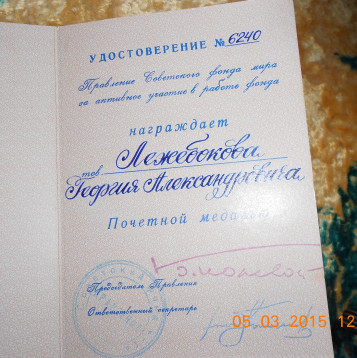 УДОСТОВЕРЕНИЕ № 6240
Правление Советского фонда мира
за активное участие в работе фонда
награждает
тов. Лежебокова
Георгия Александровича
Почетной медалью
Председатель Правления
Ответственный секретарь
05.03.2015 12